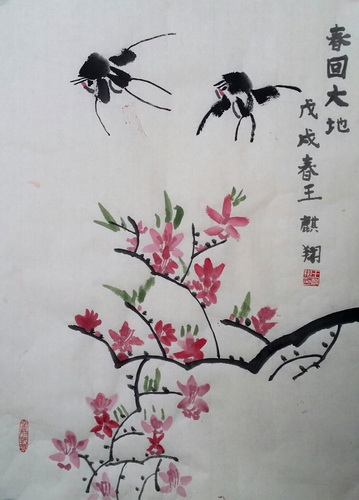 春回大地
戊戌春王麒翔